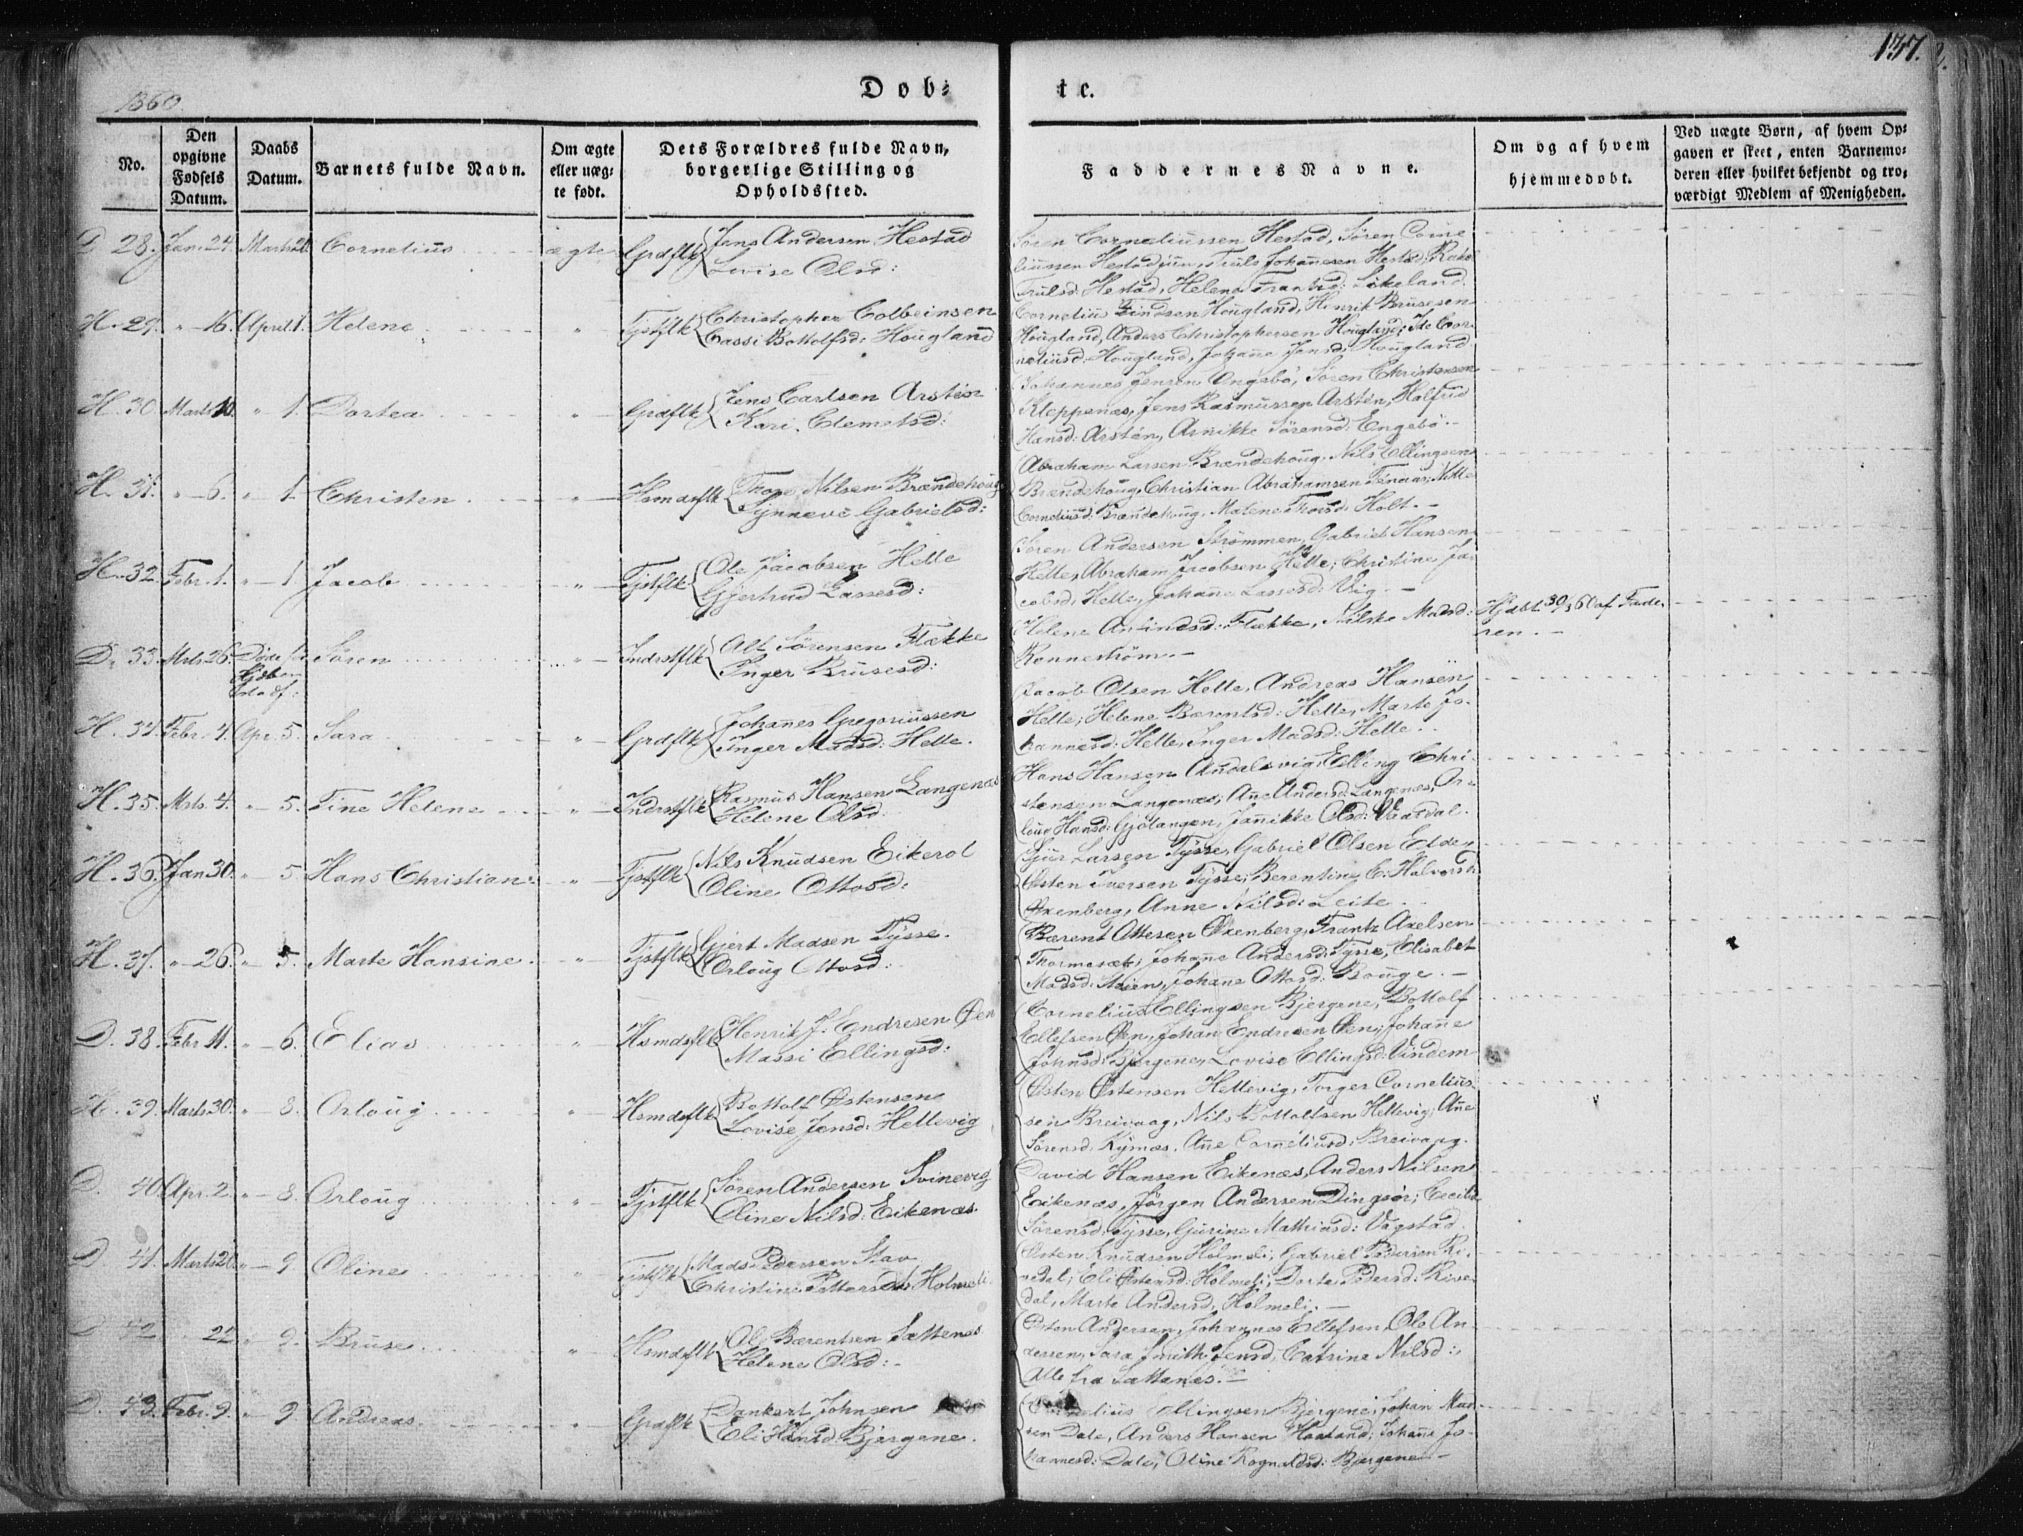 137.
1860.
Døb-
te.
No.
Den opgivne Fødsels Datum.
Daabs Datum.
Barnets fulde Navn.
Om ægte eller uæg-te født.
Dets Forældres fulde Navn, borgerlige Stilling og Opholdssted.
Faddernes Navne.
Om og af hvem hjemmedøbt.
Ved uægte Børn, af hvem Op-gaven er skeet, enten Barnemo-deren eller hvilket bekjendt og tro-værdigt Medlem af Menigheden.
D. 28. Jan. 24. Marts Cornelius ægte Grdflk Jens Andersen Hestad
Lovise Olsd:
Søren Corneliussen Hestad, Søren Corne
liussen Hestad jun, Truls Johanesen Hestad,
Trulsd: Hestad, Helene
H. 29. " 16. April 1. Helene " Tjstflk Christopher Colbeinsen
Cassi Bottolfsd: Hougland
Cornelius Hougland, Henrik Brusesen
Hougland, Anders Christophersen Hougland, Cor-
neliusd: Hougland, Johane Jensd: Hougland
H. 30. Marts 10. " 1. Dortea " Grdflk Jens Carlsen Arstein
Kari Clemetsd:
Johannes Jensen Engebö, Søren Christensen
Kleppenæs, Jens Rasmussen Arstén, Halfrid
Hansd: Arstén, Annikke Sørensd: Engebö. –
H. 31. " 6. " 1. Christen " Hsmdsflk Thore Nilsen Brændehoug
Synneve Gabrielsd:
Abraham Larsen Brændehoug, Nils Ellingsen
Brændehoug, Christian Abrahamsen
Corneliusd: Brændehoug, Malene Thorsd: Holt. –
H. 32. Febr. 1. " 1 Jacob " Tjstflk Ole Jacobsen Helle
Gjertrud Lassesd:
Søren Andersen Strömmen, Gabriel Hansen
Helle, Abraham Jacobsen Helle, Christine Ja-
cobsd: Helle, Johane Lassesd: Vig. –
D. 33. Mrts. 26. Søren " Indrstflk Alf Sørensen Flekke
Inger Brusesd:
Helene Flekke, Madsd:
Ronneström. –
Hjdbt 30/3 60 af Fade-
ren. –
H. 34. Febr. 4. Apr. 5. Sara " Grdflk Johanes Gregoriussen
Inger Madsd: Helle.
Jacob Olsen Helle, Andreas Hansen
Helle, Helene Bærentsd: Helle, Marte Jo-
hannesd: Helle, Inger Madsd: Helle.
H. 35. Mrts. 4. " 5. Tine Helene " Indrstflk Rasmus Hansen Langenæs
Helene Olsd:
Hans Hansen Elling Chri-
stensen Langenæs, Ane Andersd: Langenæs, Or-
loug Hansd: Gjölangen, Jannikke Olsd: Vaardal.
H. 36. Jan 30. " 5 Hans Christian " Tjstflk Nils Knudsen Eikerol
Oline Ottosd:
Sjur Larsen Tysse, Gabriel Olsen Elde,
Østen Iversen Tysse, Berentine E. Halvorsd:
Øxenberg, Anne Nilsd: Leite.
H. 37. " 26. " 5. Marte Hansine " Tjstflk Gjert Madsen Tysse.
Orloug Ottosd:
Bærent Ottesen Øxenberg, Frantz Axelsen
Johane Andersd: Tysse, Elisabet
Madsd: Steien, Johane Ottosd: Bouge. –
D. 38. Febr. 11. " 6. Elias " Hsmdsflk Henrik J. Endresen Øen
Massi Ellingsd:
Cornelius Ellingsen Bjergene, Bottolf
Ellefsen Øen, Johan Endresen Øen, Johane
Johnsd: Bjergene, Lovise Ellingsd:
H. 39. Marts 30. " 8. Orloug " Hsmdsflk Bottolf Østensen
Lovise Jensd: Hellevig
Østen Østensen Hellevig, Torger Cornelius-
sen Breivaag, Nils Bottolfsen Hellevig, Ane
Sørensd: Rymæs, Ane Corneliusd: Breivaag.
D. 40. Apr. 2. " 8. Orloug " Tjstflk Søren Andersen Svinevig
Oline Nilsd: Eikenæs.
David Hansen Eikenæs, Anders Nilsen
Eikenæs, Jørgen Andersen Dingsør, Cecilie
Sørensd: Tysse, Gurine Mathiasd: Vagstad.
D. 41. Marts 20. " 9 Oline " Tjstflk Mads Pedersen Stav
Christine Pettersd: Holmeli
Østen Knudsen Holmeli, Gabriel Pedersen Ri-
vedal, Eli Østensd: Holmeli, Dorte Pedersd: Rive-
dal, Marte Andersd: Holmeli. –
D. 42. " 22. " 9. Bruse " Hsmdsflk Ole Bærentsen Sættenæs
Helene Olsd: –
Østen Andersen, Johannes Ellefsen, Ole An-
dersen, Sara Smith Jensd, Catrine Nilsd:,
Alle fra Sættenæs. –
D. 43. Febr. 9. " 9 Andreas " Grdflk Dankert Johnsen
Eli Hansd: Bjergene.
Cornelius Ellingsen Bjergene, Johan Mad-
sen Dale, Anders Hansen Haaland, Johane Jo-
hannesd: Dale, Oline Rognaldsd: Bjergene –